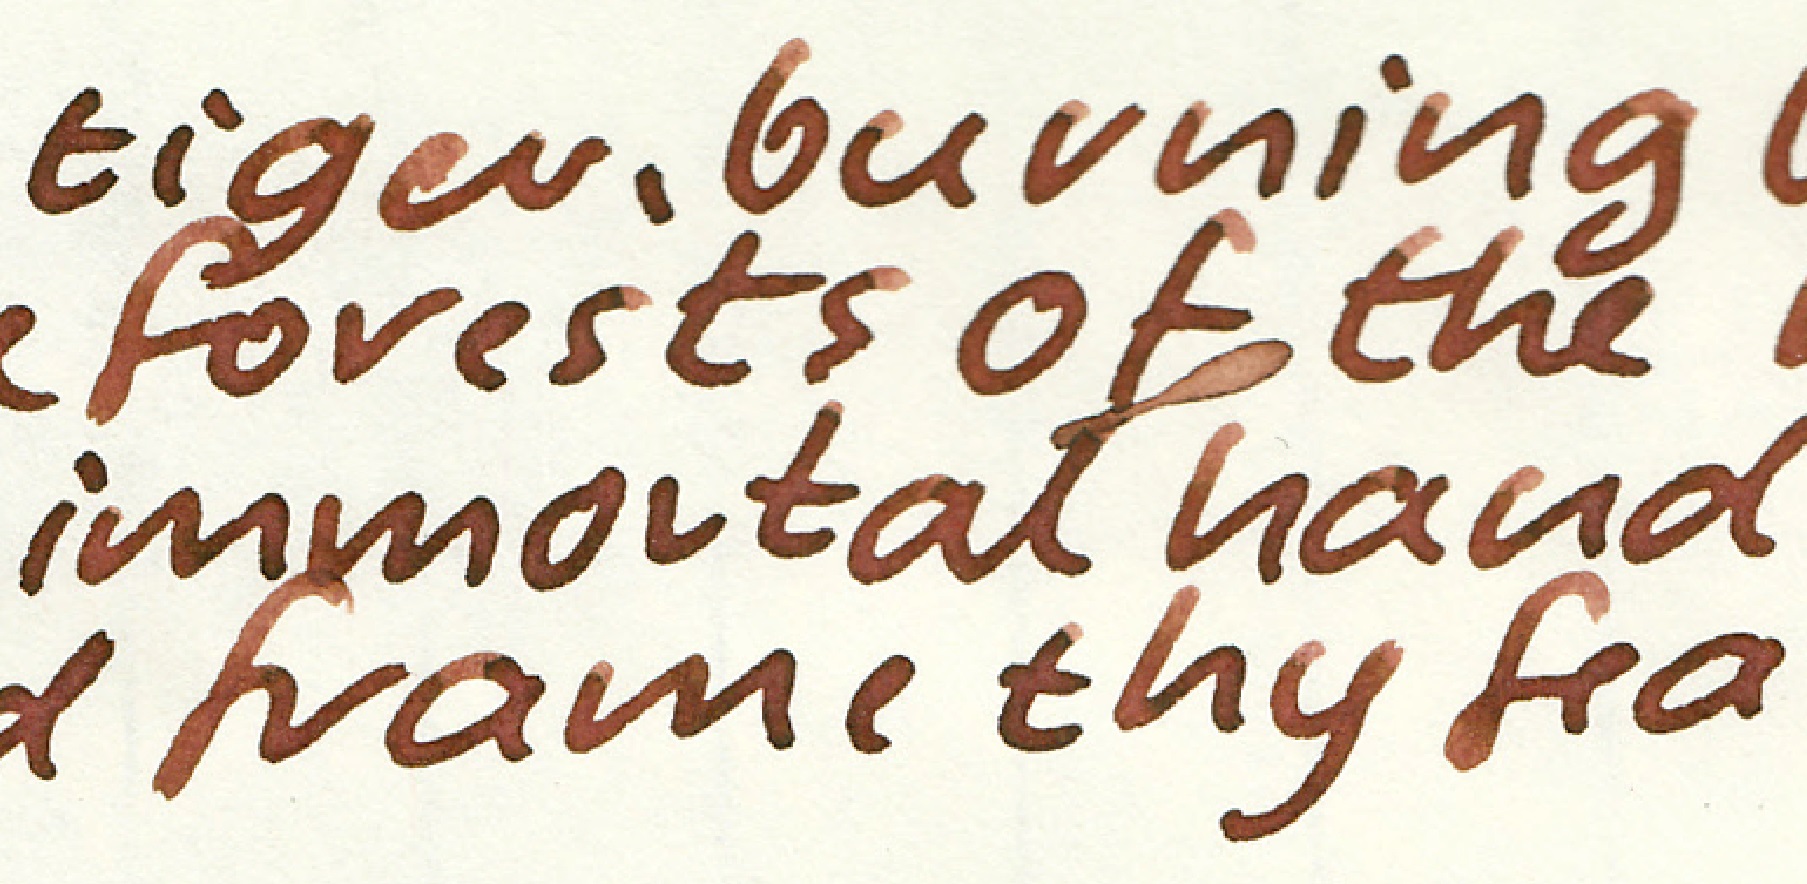 tiger, burning b
e forests of the
immortal hand
d frame thy fea